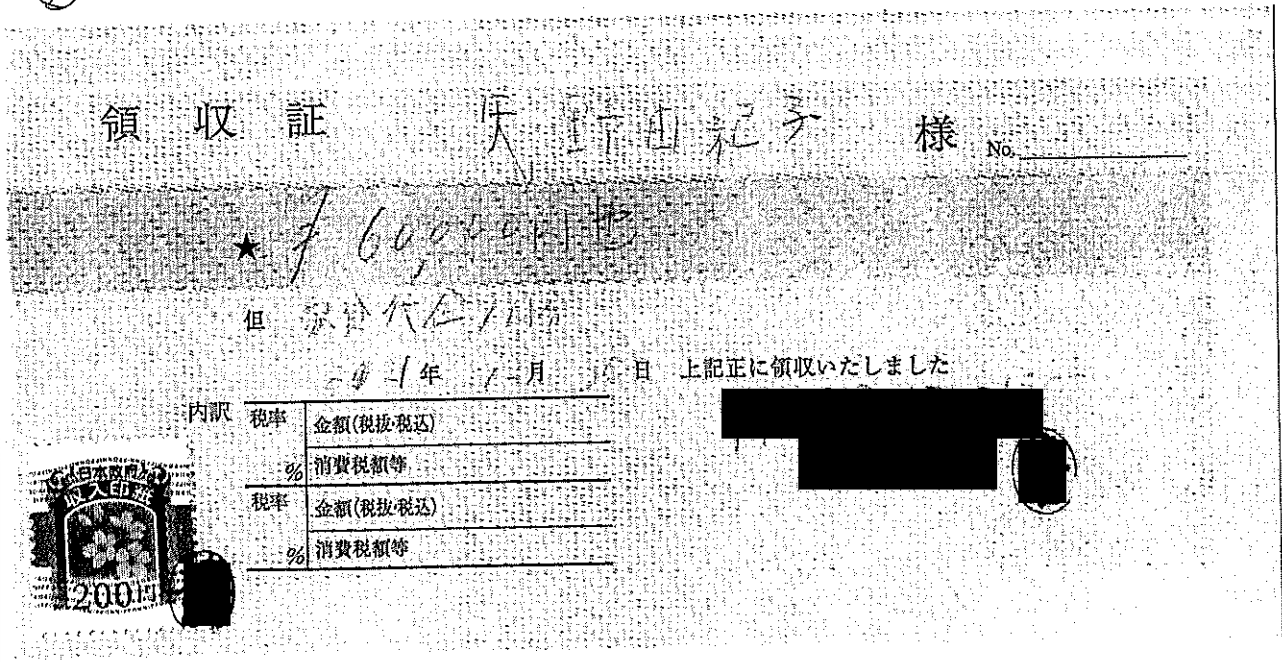 領収証 矢野由記子 様 No.
★ ¥60,000円也
但 代金
年 月 日 上記正に領収いたしました
内訳 税率 金額(税抜・税込)
% 消費税額等
税率 金額(税抜・税込)
% 消費税額等
日本政府
収入印紙
200円